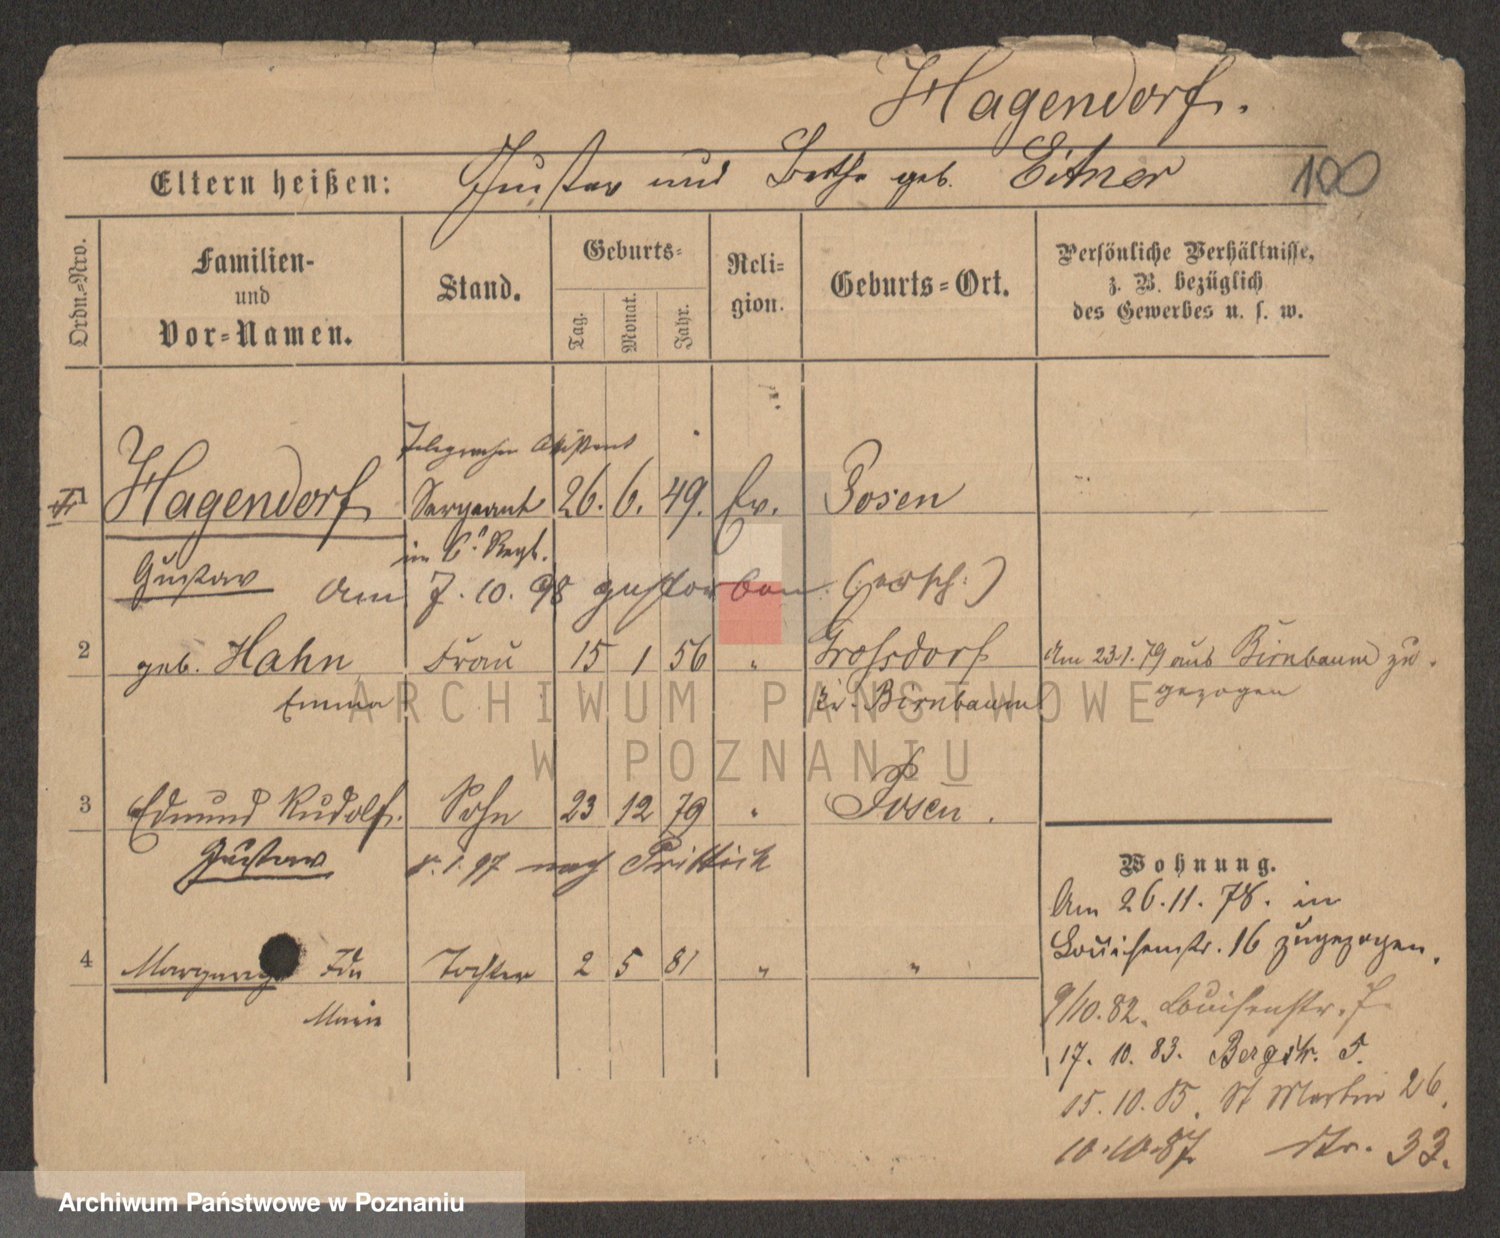 Hagendorf.
Eltern heißen: Gustav und Berthe geb. Eitner 100
Ordn.=Nro.
Familien-
und
Vor=Namen.
Stand.
Geburts=
Tag.
Monat.
Jahr.
Reli=
gion.
Geburts=Ort.
Persönliche Verhältnisse,
z. B. bezüglich
des Gewerbes u. s. w.
Telegraphen Assistent
1 Hagendorf Sergeant 26. 6. 49. Ev. Posen
Gustav im 6. Regt.
Am 7. 10. 98 gestorben
2 geb. Hahn Frau 15 1 56 " Großdorf Am 23.1.79 aus Birnbaum zu-
Emma Kr. Birnbaum gezogen
3 Edmund Rudolf Sohn 23 12 79 " Posen.
Gustav 97 nach Prittisch
Wohnung.
Am 26.11.78. in
4 Ida Tochter 2 5 81 " " Louisenstr. 16 zugezogen.
Marie
9/10.82. Louisenstr. 7
17. 10. 83. Bergstr. 5.
15.10.85. St Martin 26.
10.10.87. Str. 33.
ARCHIWUM PAŃSTWOWE
W POZNANIU
Archiwum Państwowe w Poznaniu